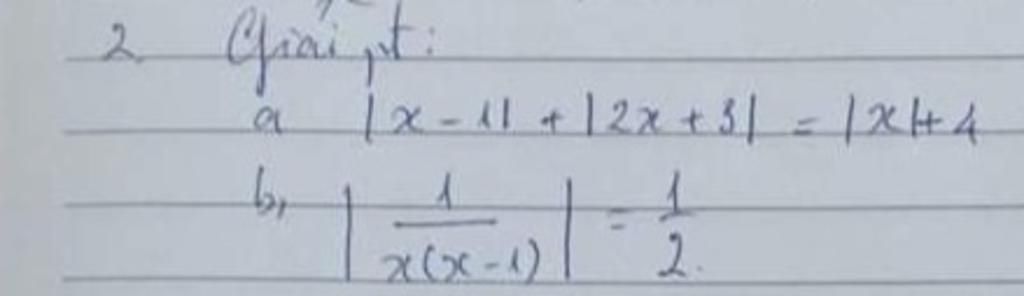 2 Giải pt:
a |x - 1| + |2x + 3| = |x| + 4
b, |1/x(x - 1)| = 1/2.